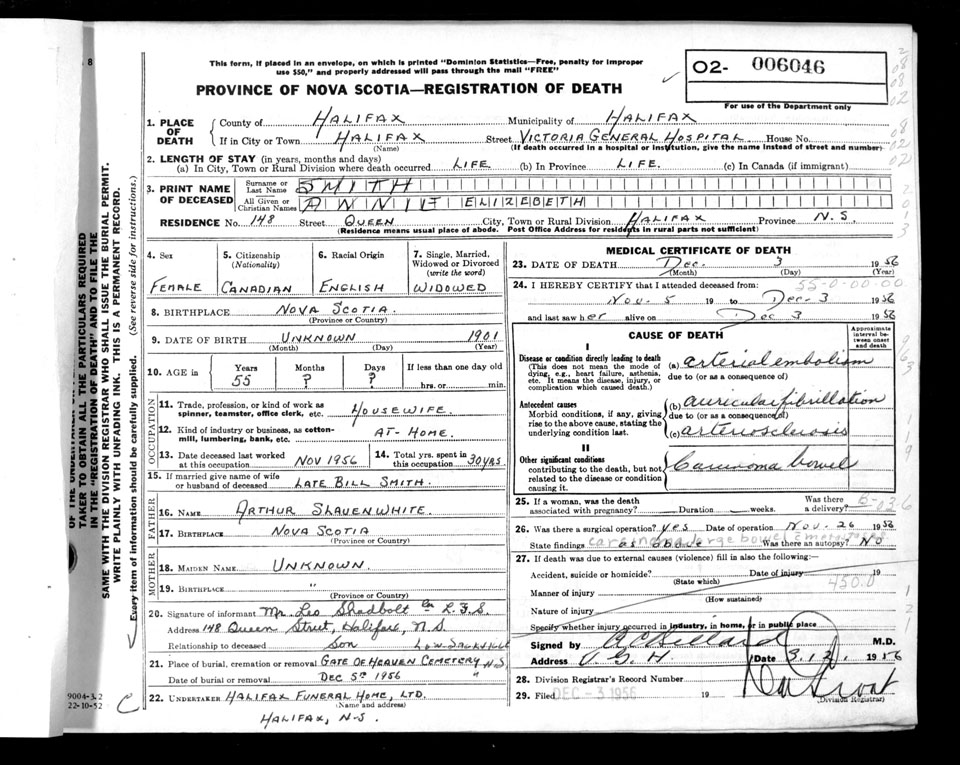 This form, if placed in an envelope, on which is printed "Dominion Statistics—Free, penalty for improper
use $50," and properly addressed will pass through the mail "FREE"
O2- 006046
For use of the Department only
PROVINCE OF NOVA SCOTIA—REGISTRATION OF DEATH
1. PLACE OF DEATH
County of HALIFAX Municipality of HALIFAX
If in City or Town HALIFAX Street VICTORIA GENERAL HOSPITAL House No.
(Name) (If death occurred in a hospital or institution, give the name instead of street and number)
2. LENGTH OF STAY (in years, months and days)
(a) In City, Town or Rural Division where death occurred LIFE (b) In Province LIFE. (c) In Canada (if immigrant)
3. PRINT NAME OF DECEASED
Surname or Last Name SMITH
All Given or Christian Names ANNIE ELIZEBETH
RESIDENCE No. 148 Street QUEEN City, Town or Rural Division HALIFAX Province N.S.
(Residence means usual place of abode. Post Office Address for residents in rural parts not sufficient)
4. Sex
FEMALE
5. Citizenship (Nationality)
CANADIAN
6. Racial Origin
ENGLISH
7. Single, Married, Widowed or Divorced (write the word)
WIDOWED
8. BIRTHPLACE NOVA SCOTIA.
(Province or Country)
9. DATE OF BIRTH UNKNOWN 1901
(Month) (Day) (Year)
10. AGE in Years Months Days If less than one day old
55 ? ? hrs. or min.
OCCUPATION
11. Trade, profession, or kind of work as spinner, teamster, office clerk, etc. HOUSEWIFE.
12. Kind of industry or business, as cotton-mill, lumbering, bank, etc. AT-HOME.
13. Date deceased last worked at this occupation NOV 1956
14. Total yrs. spent in this occupation 30 YRS
15. If married give name of wife or husband of deceased LATE BILL SMITH.
FATHER
16. NAME ARTHUR SLAUENWHITE.
17. BIRTHPLACE NOVA SCOTIA
(Province or Country)
MOTHER
18. MAIDEN NAME UNKNOWN.
19. BIRTHPLACE "
(Province or Country)
20. Signature of informant Mr. Leo Shadbolt
Address 148 Queen Street, Halifax, N.S.
Relationship to deceased Son
21. Place of burial, cremation or removal GATE OF HEAVEN CEMETERY N.S.
Date of burial or removal DEC 5th 1956 "
22. UNDERTAKER HALIFAX FUNERAL HOME, LTD.
(Name and address)
HALIFAX, N-S.
MEDICAL CERTIFICATE OF DEATH
23. DATE OF DEATH Dec. 3 1956
(Month) (Day) (Year)
24. I HEREBY CERTIFY that I attended deceased from: 55-0-00-00
Nov. 5 19 to Dec. 3 1956
and last saw her alive on Dec 3 1956
CAUSE OF DEATH
Approximate interval between onset and death
I
Disease or condition directly leading to death
(This does not mean the mode of dying, e.g., heart failure, asthenia, etc. It means the disease, injury, or complication which caused death.)
(a) arterial embolism
due to (or as a consequence of)
Antecedent causes
Morbid conditions, if any, giving rise to the above cause, stating the underlying condition last.
(b) auricular fibrillation
due to (or as a consequence of)
(c) arteriosclerosis
II
Other significant conditions
contributing to the death, but not related to the disease or condition causing it.
Carcinoma bowel
25. If a woman, was the death associated with pregnancy? Duration weeks. Was there a delivery?
26. Was there surgical operation? Yes Date of operation Nov. 26 1956
State findings as above Was there an autopsy? No
carcinoma large bowel
27. If death was due to external causes (violence) fill in also the following:—
Accident, suicide or homicide? Date of injury 19
(State which)
450.0
Manner of injury
(How sustained)
Nature of injury
Specify whether injury occurred in industry, in home, or in public place
Signed by M.D.
Address V. G. H. Date 3.12. 1956
28. Division Registrar's Record Number
29. Filed DEC - 3 1956 19
(Division Registrar)
TAKER TO OBTAIN ALL THE PARTICULARS REQUIRED
IN THE "REGISTRATION OF DEATH" AND TO FILE THE
SAME WITH THE DIVISION REGISTRAR WHO SHALL ISSUE THE BURIAL PERMIT.
WRITE PLAINLY WITH UNFADING INK. THIS IS A PERMANENT RECORD.
Every item of information should be carefully supplied. (See reverse side for instructions.)
9004-3.2
22-10-52